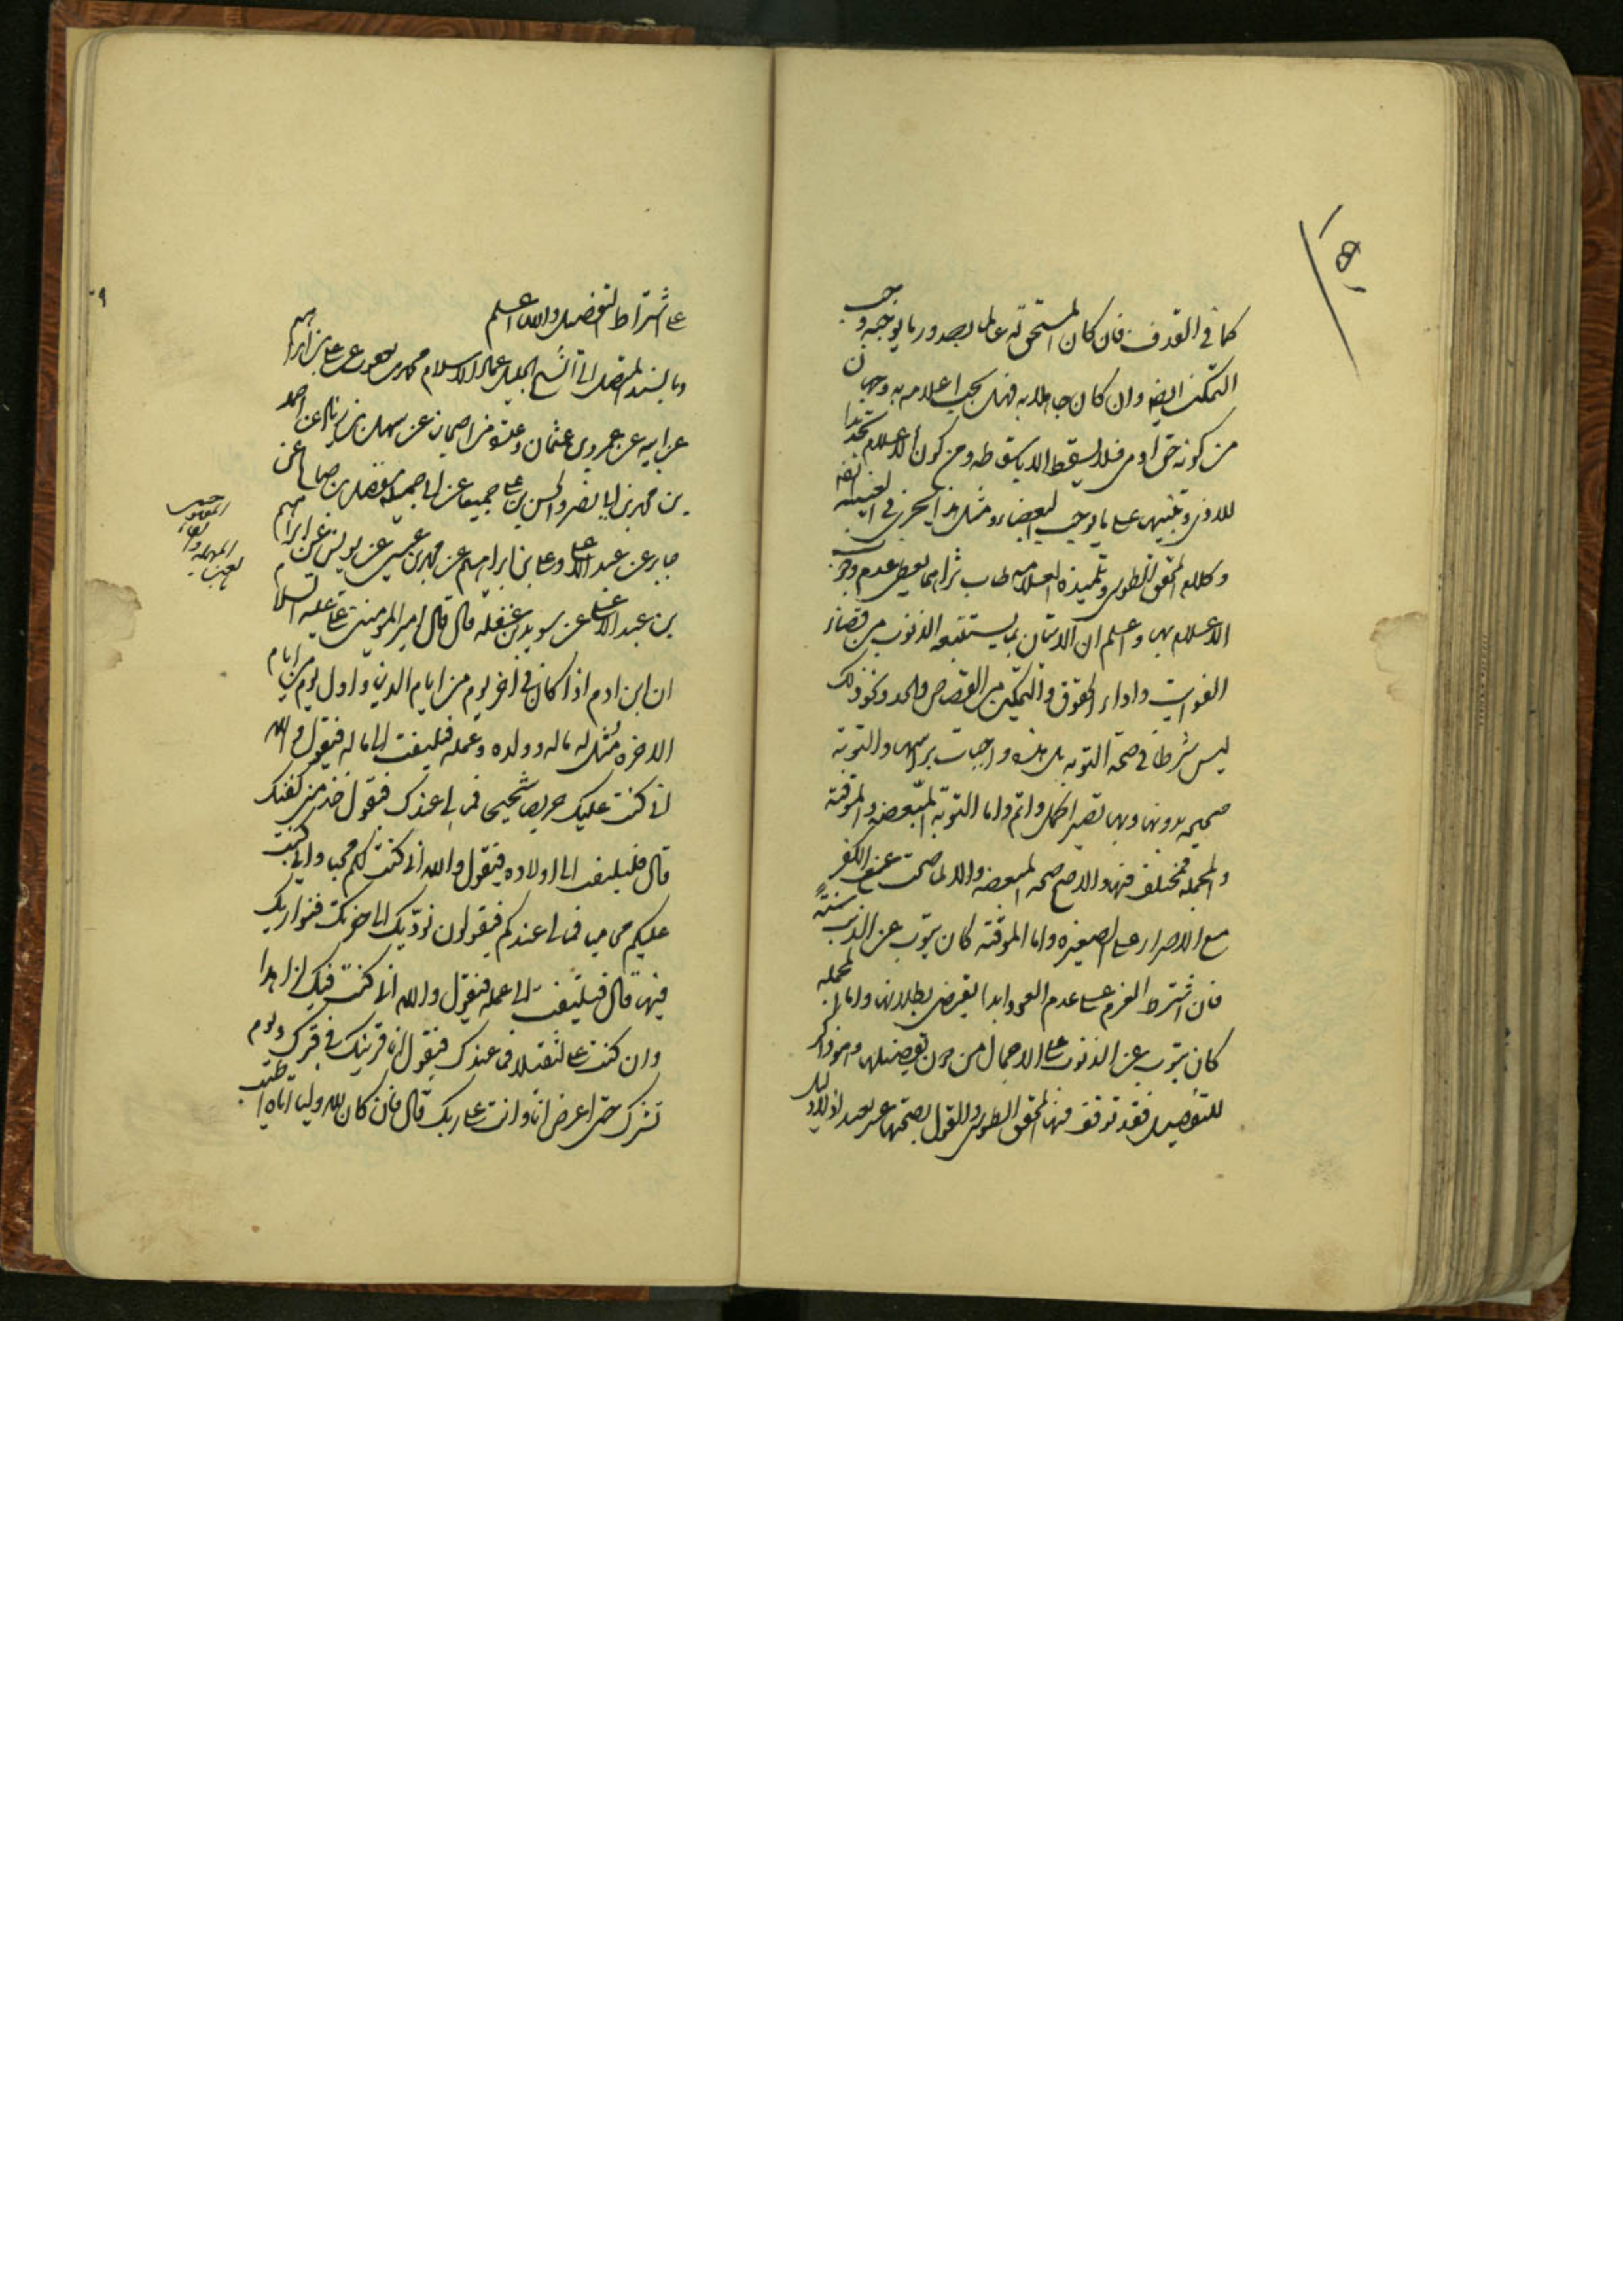 كما في القذف فان كان المستحق له عالما بصدور ما يوجبه وجب
التمكين ايضا وان كان جاهلا به فهل يجب اعلامه به وجهان
من كونه حق ادمي فلا يسقط الا باسقاطه ومن كون الاعلام تجديدا
للاذى وتنبيها على ما يوجب البغضاء ومثل هذا يجري في الغيبة ايضا
وكلام المحقق الطوسي وتلميذه العلامة طاب ثراهما يعطي عدم وجوب
الاعلام بها واعلم ان الاتيان بما يستتبعه الذنوب من قضاء
الفوايت واداء الحقوق والتمكين من القصاص والحد ونحو ذلك
ليس شرطا في صحة التوبة بل هذه واجبات براسها والتوبة
صحيحة بدونها وبها تصير اكمل واتم واما التوبة المبعضة والموقتة
والمجملة فمختلف فيها والاصح صحة المبعضة والا لما صحت عن الكفر
مع الاصرار على الصغيرة واما الموقتة كان يتوب عن الذنب سنة
فان اشتراط العزم على عدم العود ابدا يقتضي بطلانها واما المجملة
كان يتوب عن الذنوب على الاجمال من دون تفصيلها وهو ذاكر
للتفصيل فقد توقف فيها المحقق الطوسي والقول بصحتها غير بعيد اذ لا دليل
١٩
على اشتراط التفصيل والله اعلم
وبالسند المتصل الى الشيخ الجليل عماد الاسلام محمد بن يعقوب عن علي بن ابراهيم
عن ابيه عن عمرو بن عثمان وعدة من اصحابنا عن سهل بن زياد عن احمد
بن محمد بن ابي نصر والحسن بن علي جميعا عن ابي جميلة مفضل بن صالح عن
جابر عن عبد الاعلى وعلي بن ابراهيم عن محمد بن عيسى عن يونس عن ابراهيم
بن عبد الاعلى عن سويد بن غفلة قال قال امير المومنين علي عليه السلام
ان ابن ادم اذا كان في اخر يوم من ايام الدنيا واول يوم من ايام
الاخرة مثل له ماله وولده وعمله فيلتفت الى ماله فيقول والله
اني كنت عليك حريصا شحيحا فما لي عندك فيقول خذ مني كفنك
قال فيلتفت الى اولاده فيقول والله اني كنت لكم محبا واني كنت
عليكم محاميا فما لي عندكم فيقولون نؤديك الى حفرتك فنواريك
فيها قال فيلتفت الى عمله فيقول والله اني كنت فيك لزاهدا
وان كنت علي لثقيلا فما عندك فيقول انا قرينك في قبرك ويوم
نشرك حتى اعرض انا وانت على ربك قال فان كان لله وليا اتاه اطيب